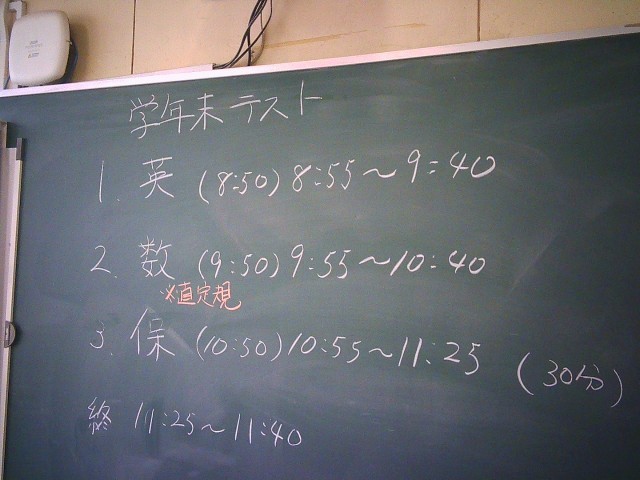 学年末テスト
1. 英 (8:50) 8:55～9:40
2. 数 (9:50) 9:55～10:40
※直定規
3. 保 (10:50) 10:55～11:25 (30分)
終 11:25～11:40